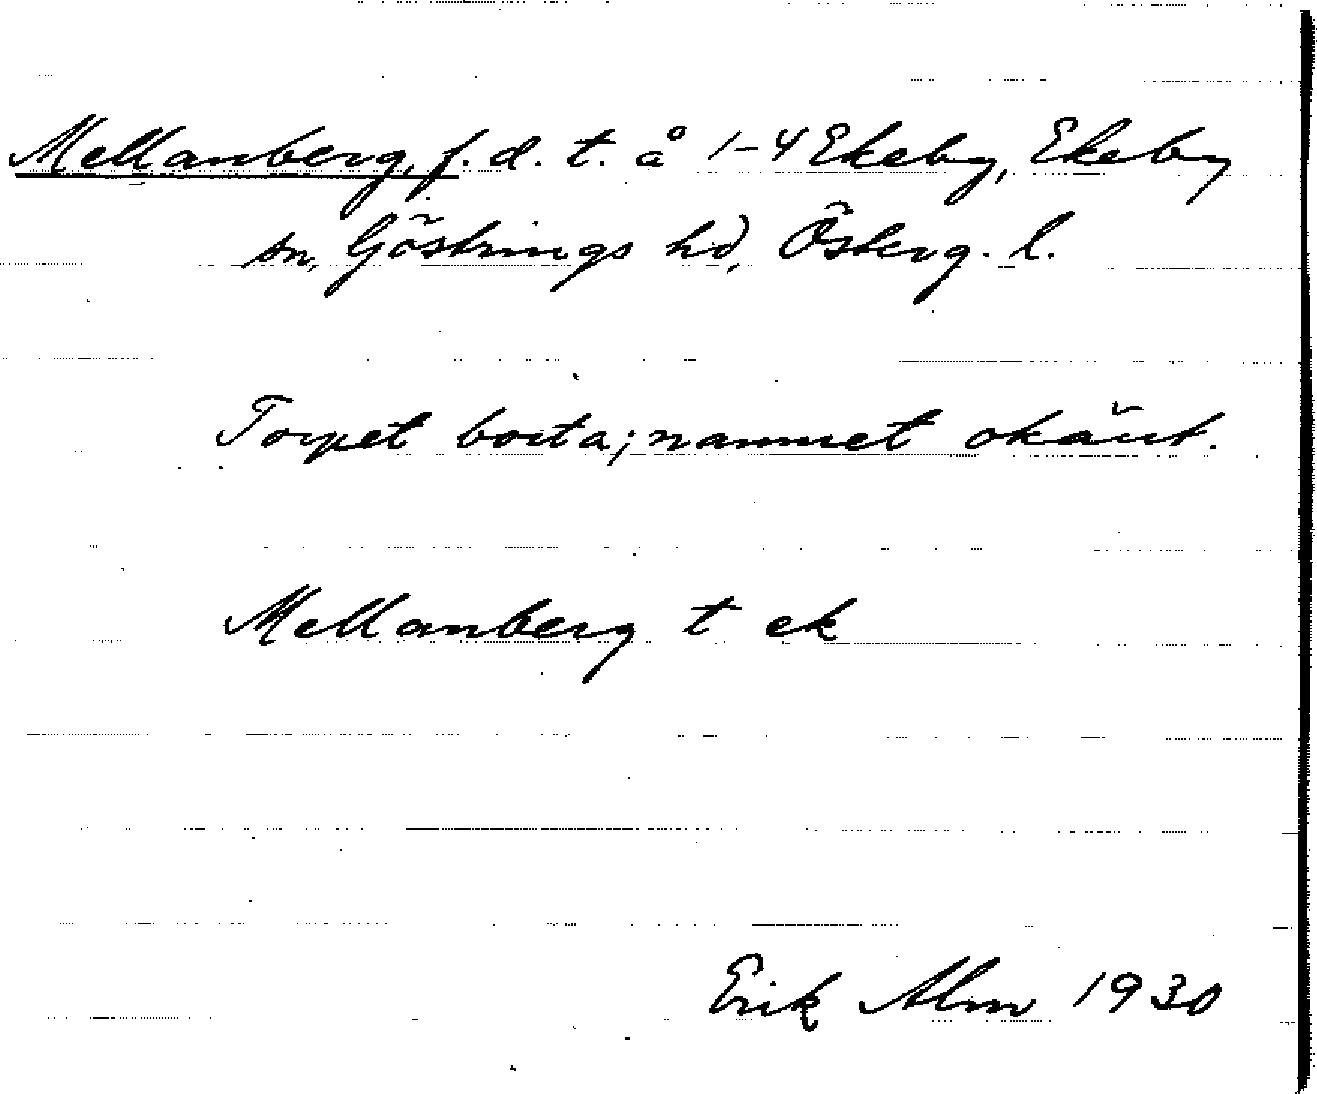 Mellanberg, f. d. t. å 1-4 Ekeby, Ekeby
sn, Göstrings hd, Österg. l.
Torpet borta; namnet okänt.
Mellanberg t ek
Erik Alm 1930